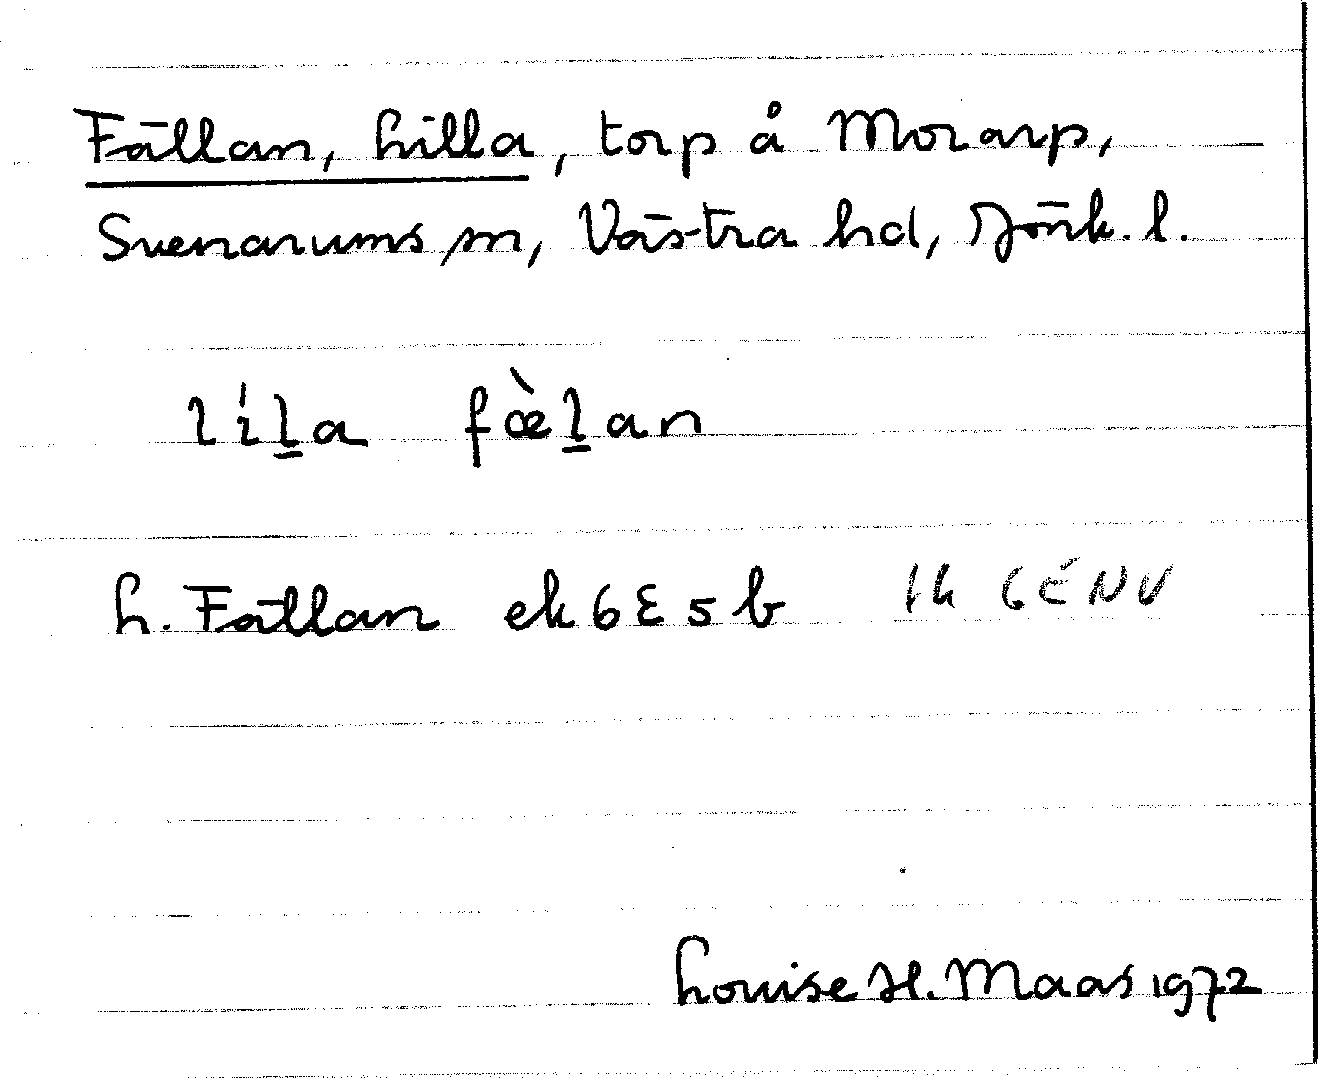 Fällan, Lilla, torp å Morarp,
Svenarums sn, Västra hd, Jönk. l.
líḻa fæ̀ḻan
L. Fällan ek 6E5b
Louise H. Maas 1972